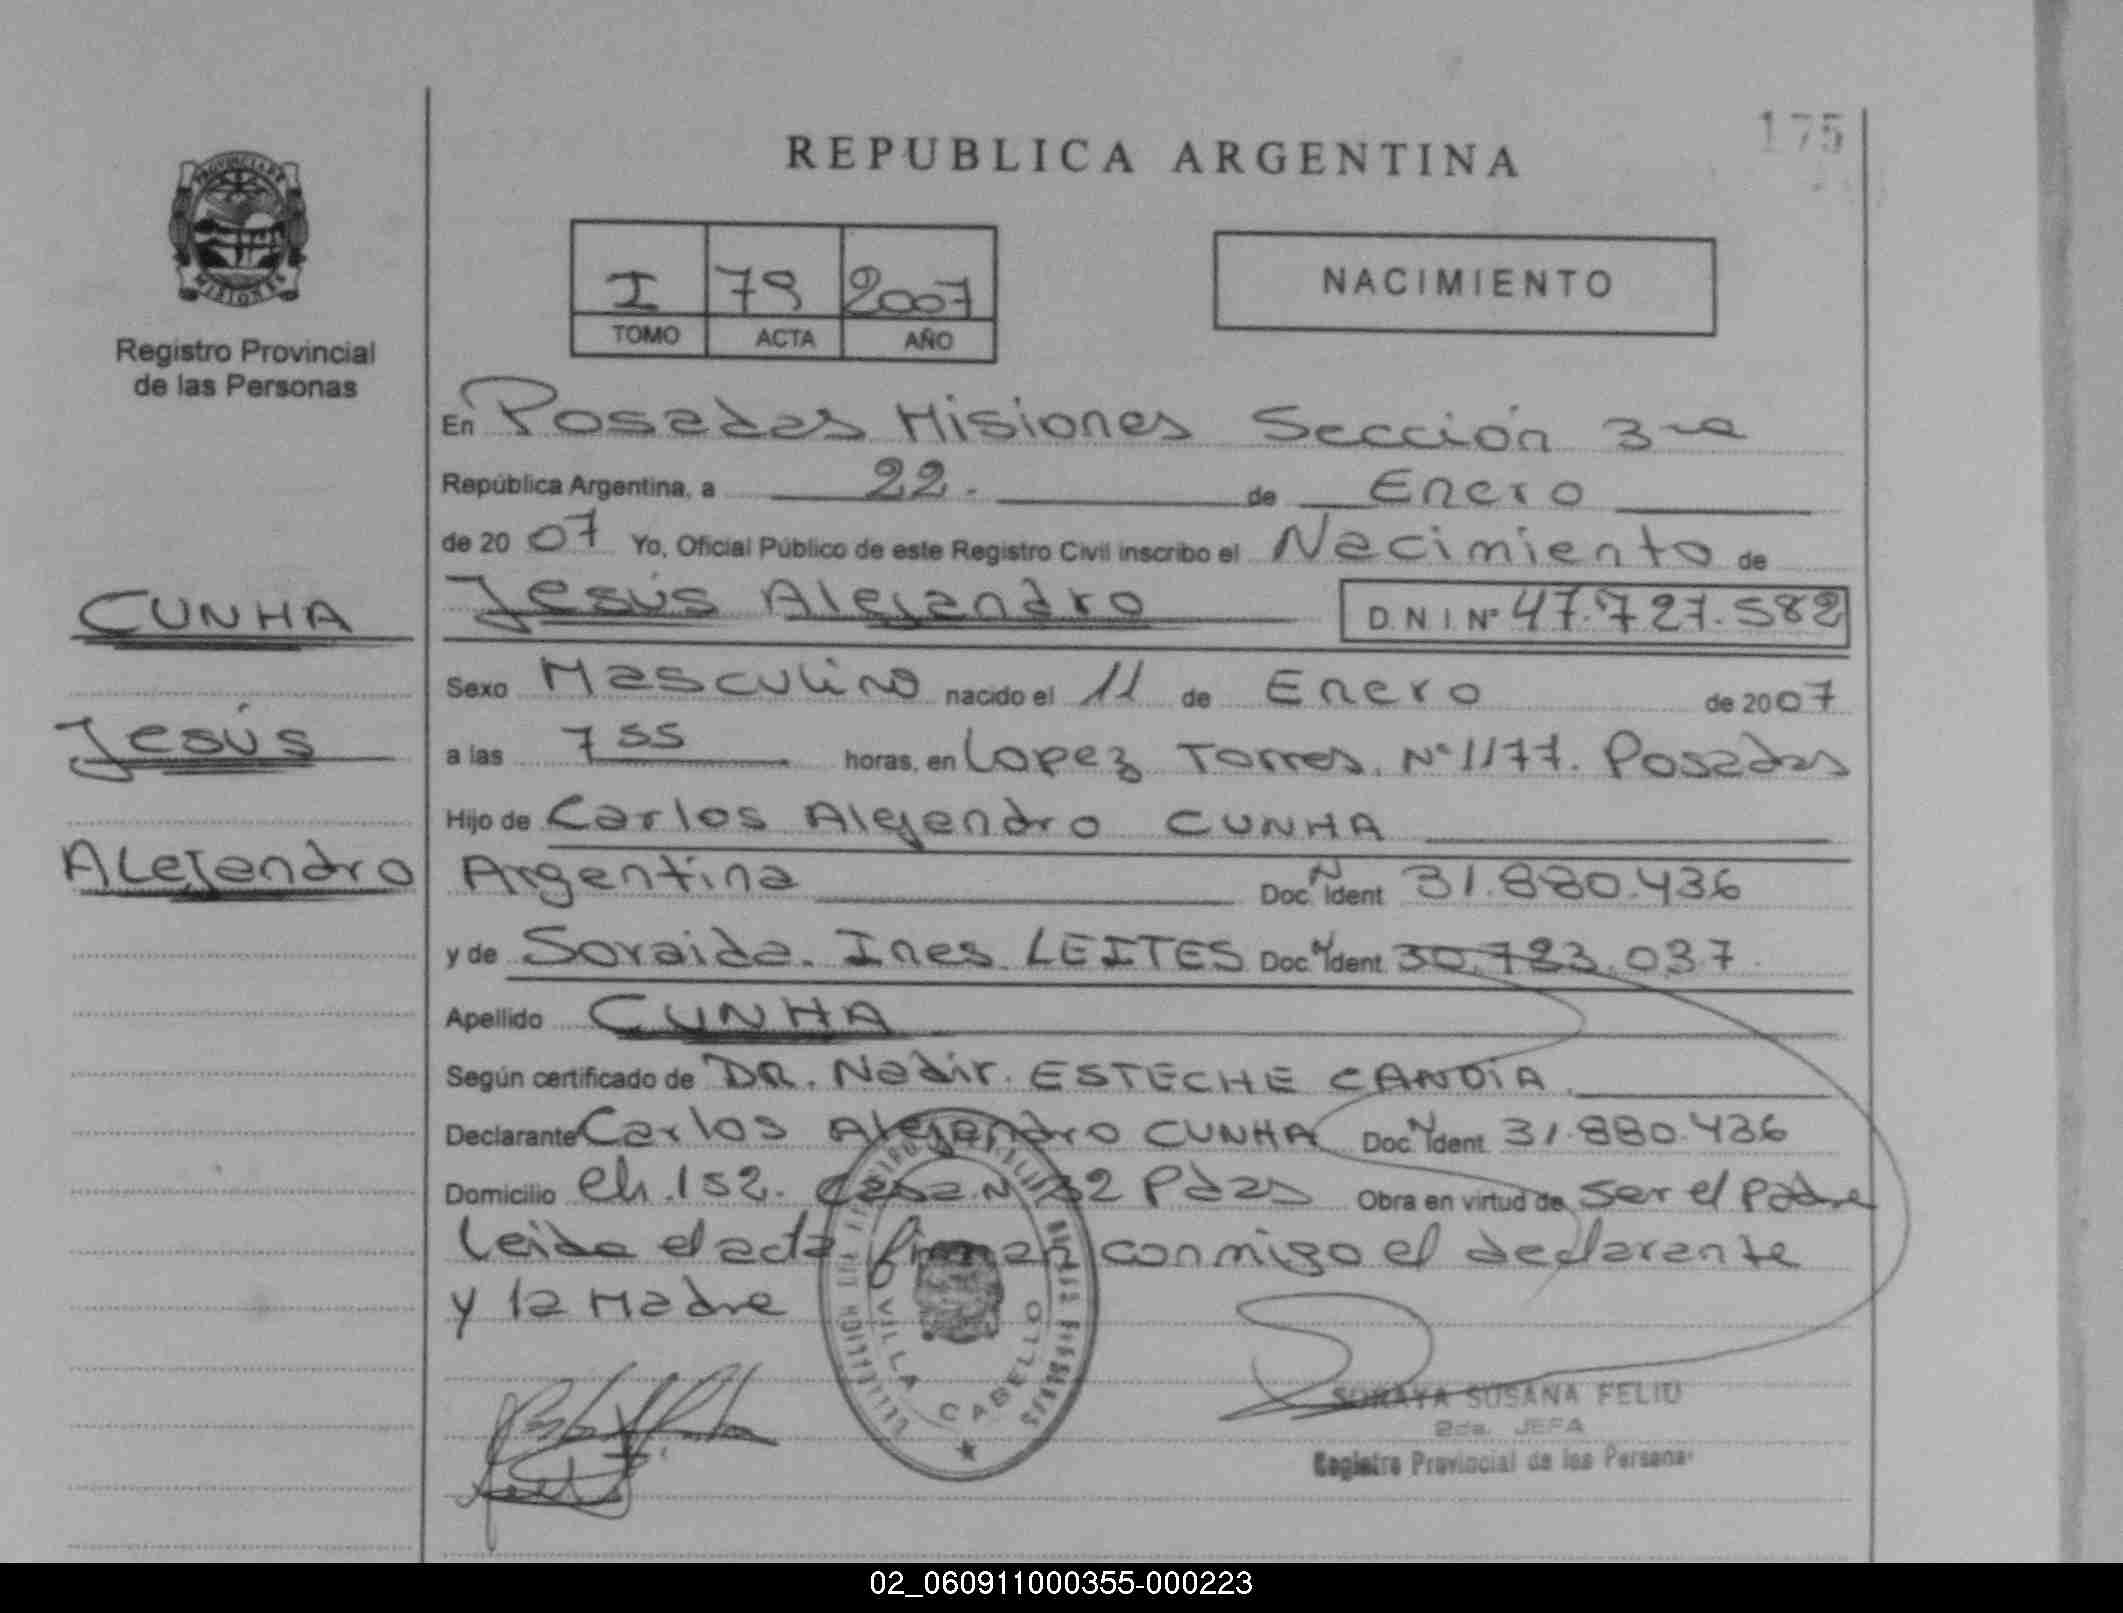 175
REPUBLICA ARGENTINA
PROVINCIA DE
MISIONES
Registro Provincial
de las Personas
I 79 2007
TOMO ACTA AÑO
NACIMIENTO
En Posadas Misiones Sección 3ra
República Argentina, a 22. de Enero
de 2007 Yo, Oficial Público de este Registro Civil inscribo el Nacimiento de
CUNHA
Jesús Alejandro D.N.I. Nº 47.727.582
Sexo Masculino nacido el 11 de Enero de 2007
Jesús
a las 7 55 horas, en Lopez Torres. Nº 1177. Posadas
Hijo de Carlos Alejandro CUNHA
Alejandro
Argentina Doc. N Ident 31.880.436
y de Soraida. Ines. LEITES Doc. N Ident 30.783.037.
Apellido CUNHA
Según certificado de DR. Nadir. ESTECHE CANDIA.
Declarante Carlos Alejandro CUNHA Doc. N Ident. 31.880.436
Domicilio Ch. 152. Casa. N 32 Pdas Obra en virtud de ser el padre
leida el acta firman conmigo el declarante
y la Madre
VILLA CABELLO
SORAYA SUSANA FELIU
2da. JEFA
Registro Provincial de las Personas
02_060911000355-000223